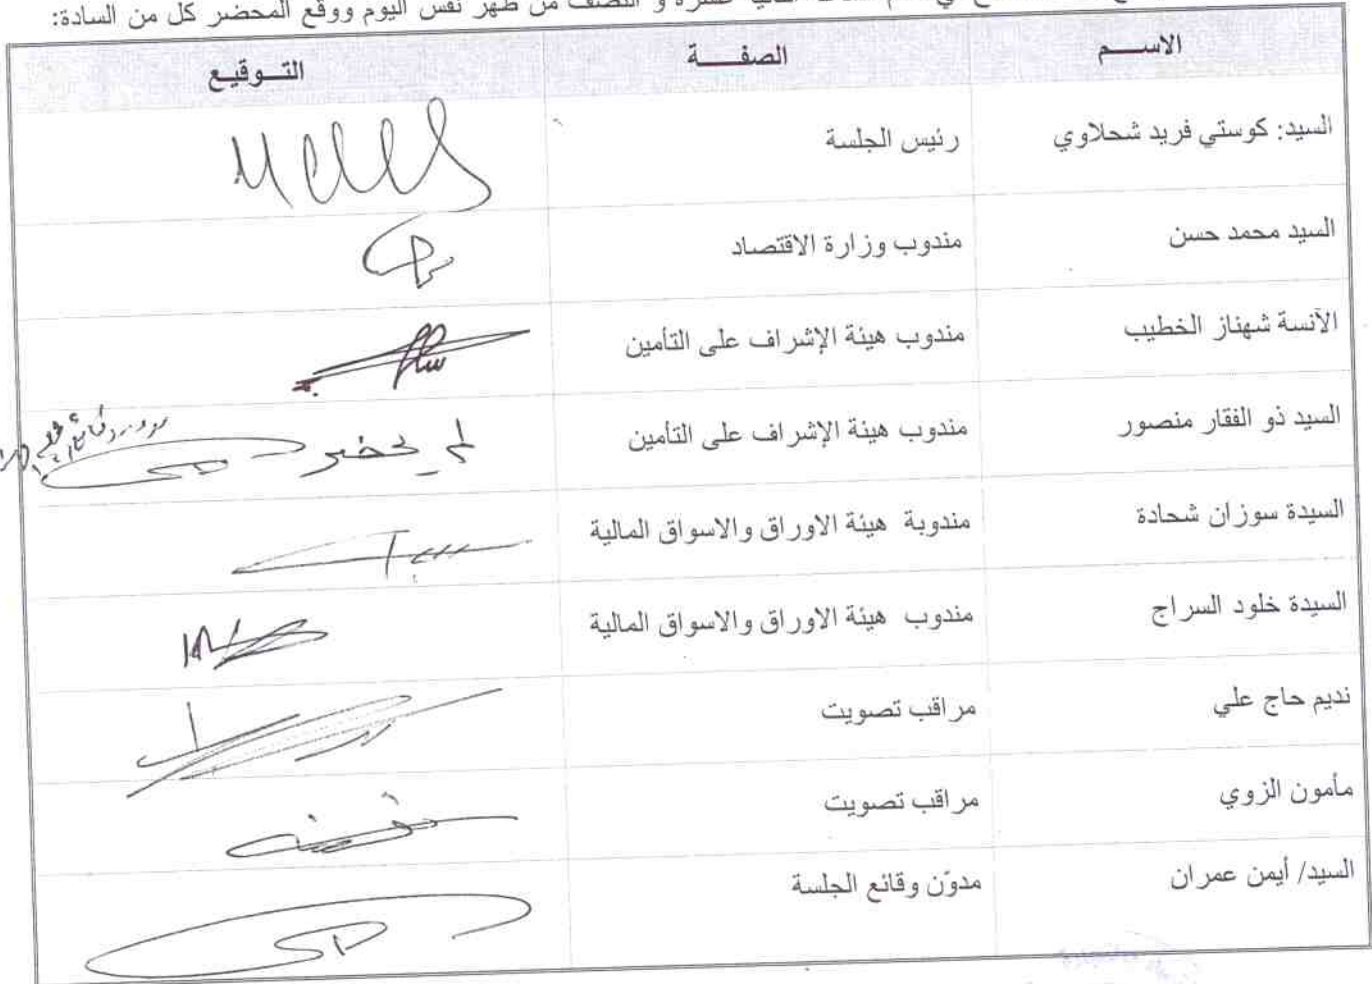 الثانية عشرة و النصف من ظهر نفس اليوم ووقع المحضر كل من السادة:
الاســـم الصفـــة التــوقيـع
السيد: كوستي فريد شحلاوي رئيس الجلسة
السيد محمد حسن مندوب وزارة الاقتصاد
الآنسة شهناز الخطيب مندوب هيئة الإشراف على التأمين
السيد ذو الفقار منصور مندوب هيئة الإشراف على التأمين لم يحضر
السيدة سوزان شحادة مندوبة هيئة الاوراق والاسواق المالية
السيدة خلود السراج مندوب هيئة الاوراق والاسواق المالية
نديم حاج علي مراقب تصويت
مأمون الزوي مراقب تصويت
السيد/ أيمن عمران مدوّن وقائع الجلسة